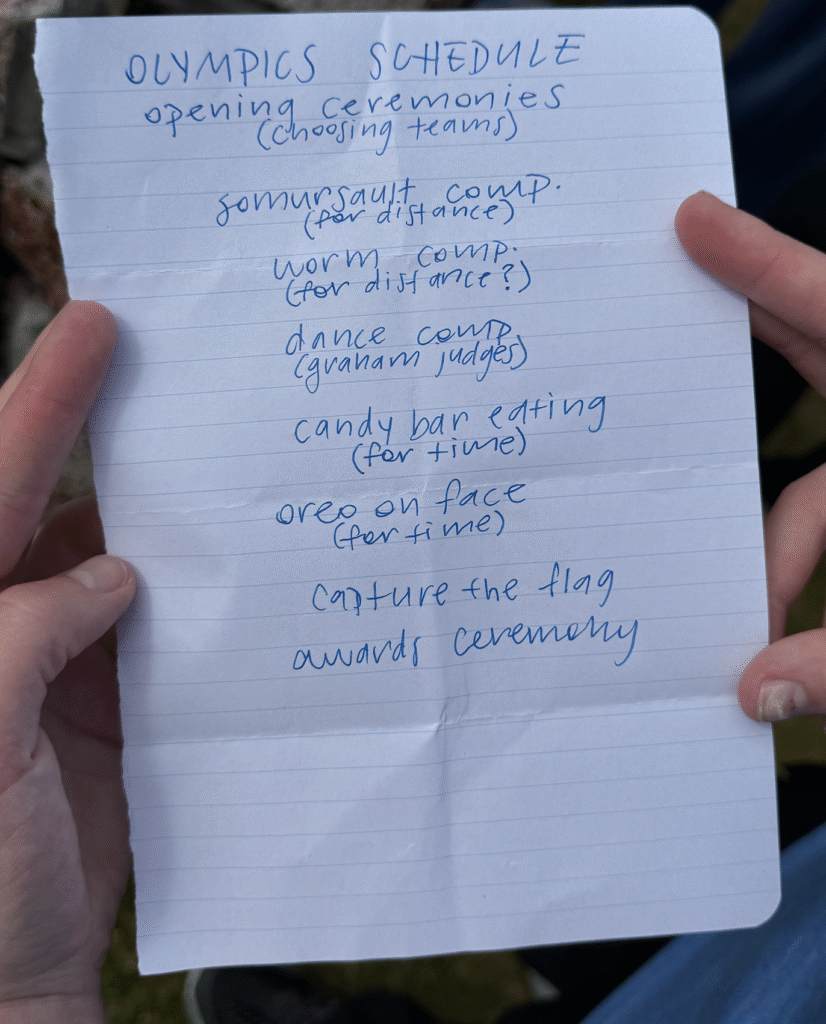 OLYMPICS SCHEDULE
opening ceremonies
(choosing teams)
somursault comp.
(for distance)
worm comp.
(for distance?)
dance comp.
(graham judges)
candy bar eating
(for time)
oreo on face
(for time)
capture the flag
awards ceremony